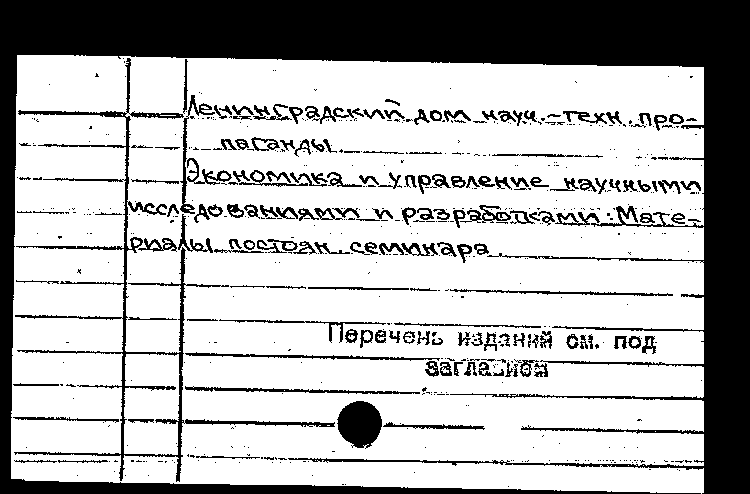 Ленинградский дом науч.-техн. про-
паганды.
Экономика и управление научными
исследованиями и разработками: Мате-
риалы постоян. семинара.
Перечень изданий см. под
заглавием